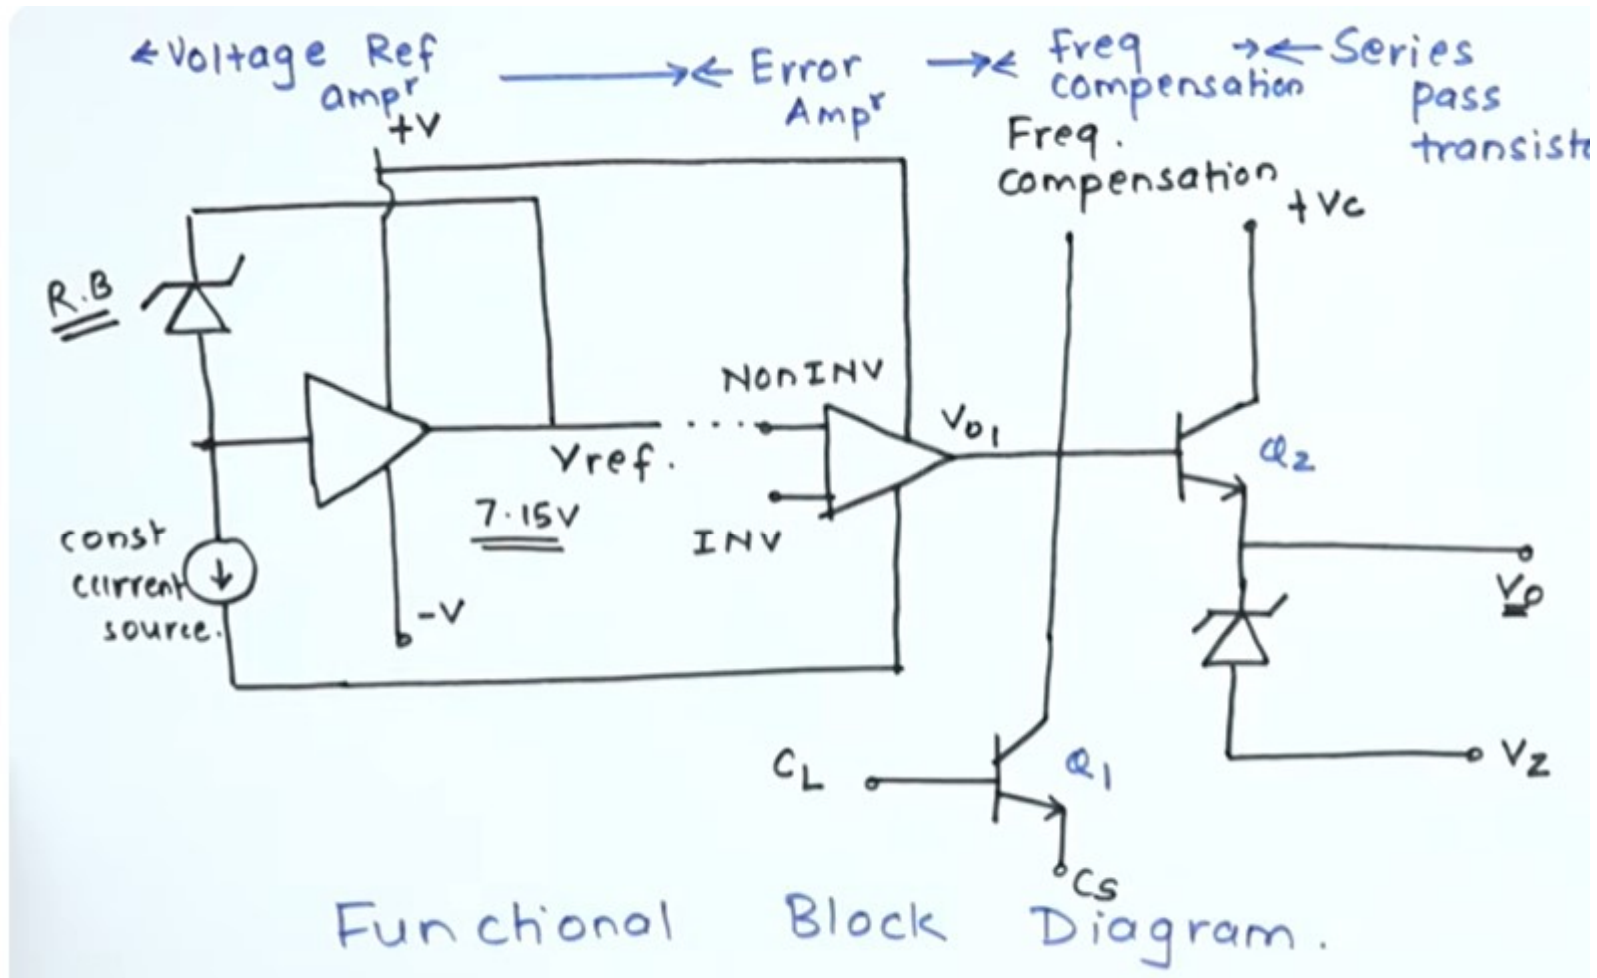 ←Voltage Ref
ampʳ
→← Error
Ampʳ
→← Freq
compensation
→← Series
pass
transist
+V
Freq.
compensation
+Vc
R.B
NonINV
Vo1
Q2
Vref.
7.15V
INV
const
current
source.
-V
Vo
CL
Q1
VZ
CS
Functional Block Diagram.